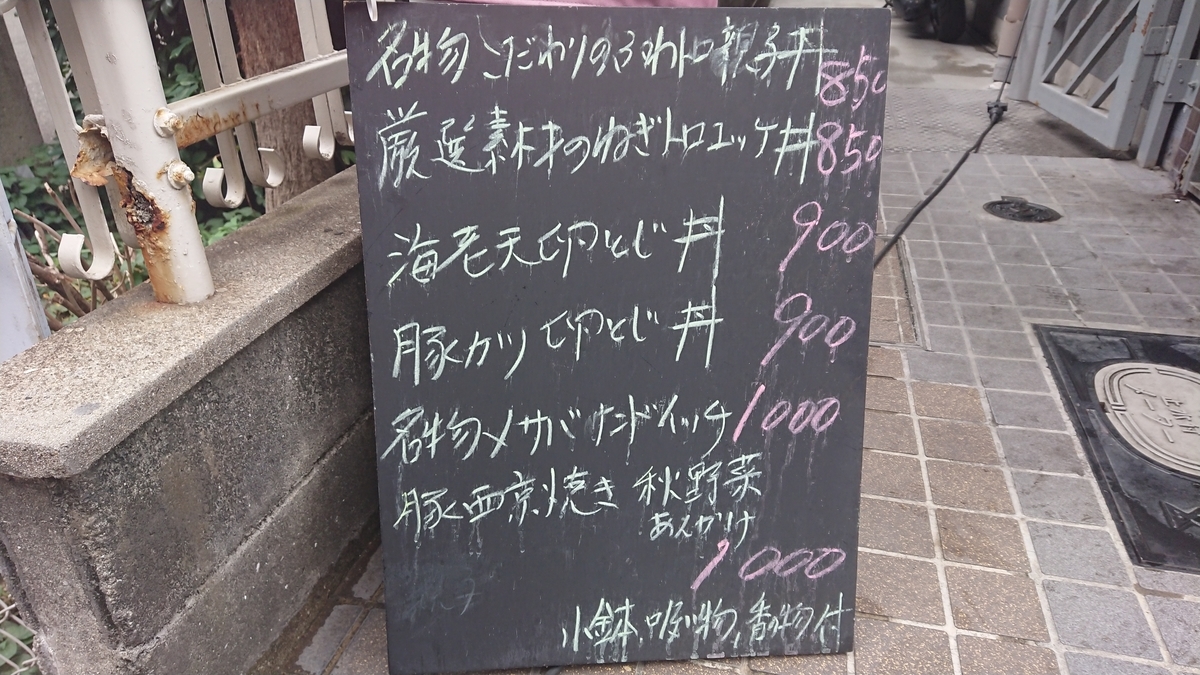 名物 こだわりのふわトロ親子丼 850
厳選素材のねぎトロユッケ丼 850
海老天卵とじ丼 900
豚カツ卵とじ丼 900
名物メサバサンドイッチ 1000
豚西京焼き 秋野菜
あんかけ
1000
小鉢、吸い物、香の物付